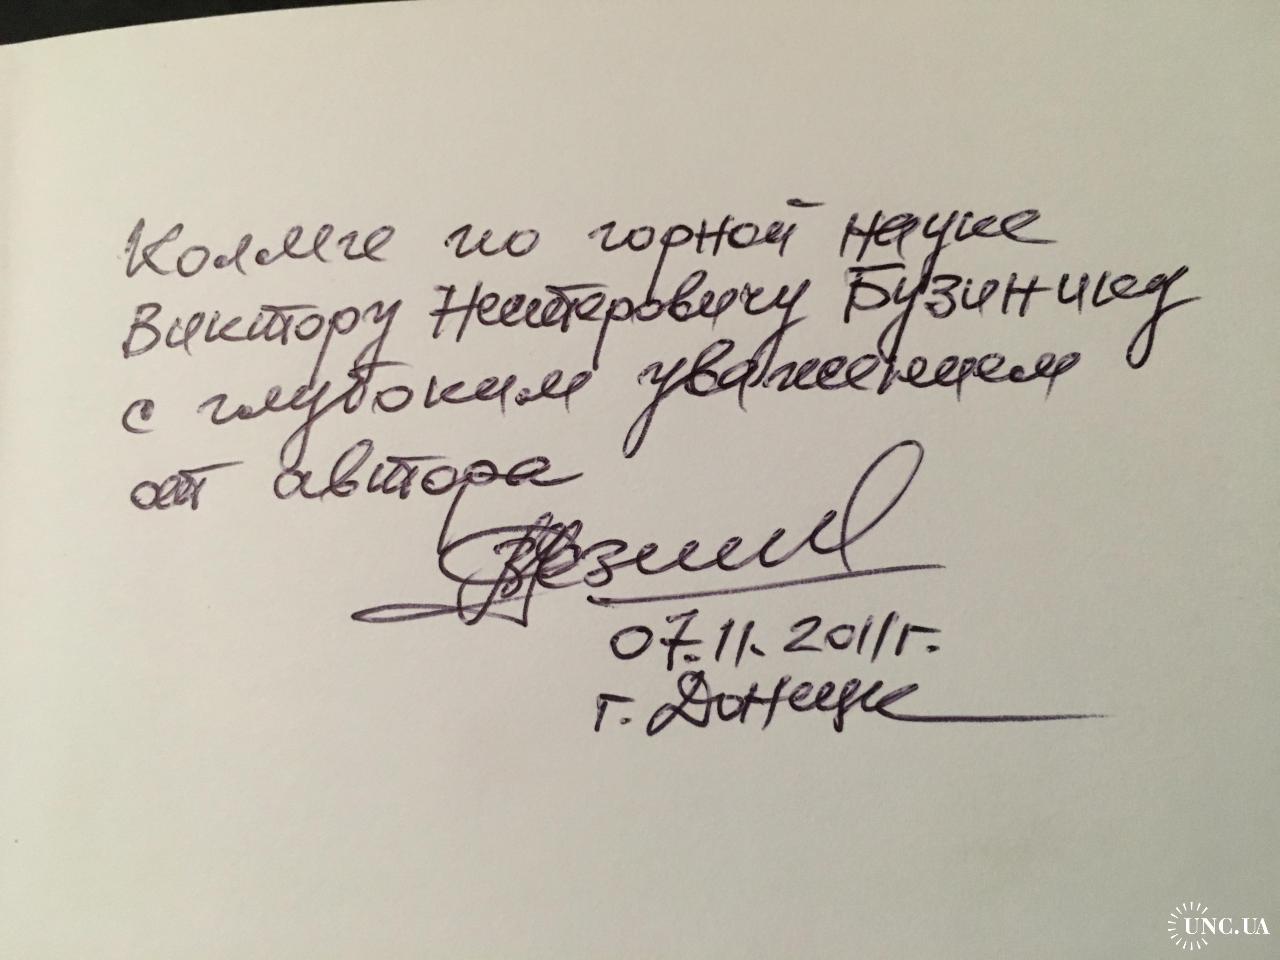 Коллеге по горной науке
Виктору Нестеровичу Бузинику
с глубоким уважением
от автора
07.11.2011г.
г. Донецк
UNC.UA